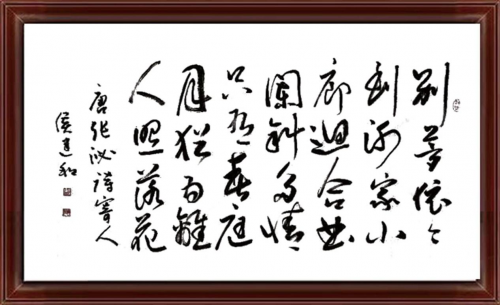 别梦依々
到谢家小
廊迴合曲
阑斜多情
只有春庭
月犹为離
人照落花
唐张泌诗寄人
侯建和